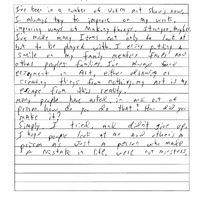 I've been in a number of victim art shows now,
I always try to improve on my work,
improving ways of making things stronger.
I've made many items not only to look at
but to be played with. I enjoy putting a
smile on my family members faces and
other peoples families. I've always found
enjoyment in Art, either drawing or
creating things from nothing. Art is my
escape from this reality.
Many people have asked in and out of
prison how do you do that? How did you
make it?
Simply I tried, and didn't give up.
I hope people look at me and others in
prison as Just a person who made
a mistake in life, were not monsters.